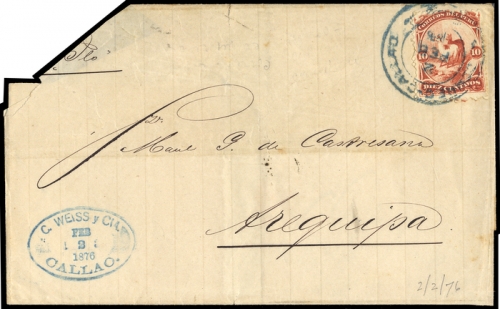 CORREOS DEL PERU
10
DIEZ CENTAVOS
CALLAO
FEB
Sr.
Manl. P. de Castresana
Arequipa.
C. WEISS y CIA
FEB
2
1876
CALLAO.
2/2/76